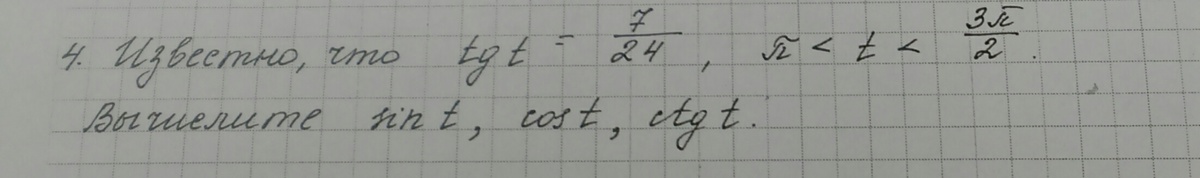 4. Известно, что tg t = 7/24, π < t < 3π/2.
Вычислите sin t, cos t, ctg t.